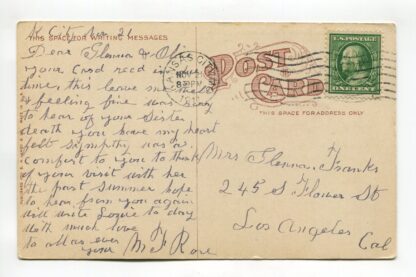 K City Mo 21
THIS SPACE FOR WRITING MESSAGES
Dear Glenna &
your Card recd in
time this leave me well
& feeling fine was sorry
to hear of your Sister
death you have my heart
felt sympathy was a
comfort to you to think
of your visit with her
the past Summer hope
to hear from you again
will write Logie to day
with much love
to all as ever
your M F Rose
POST
CARD
THIS SPACE FOR ADDRESS ONLY
KANSAS CITY
NOV 21
8 PM
U.S. POSTAGE
ONE CENT
Mrs Glenna Franks
245 S Flower St
Los Angeles
Cal